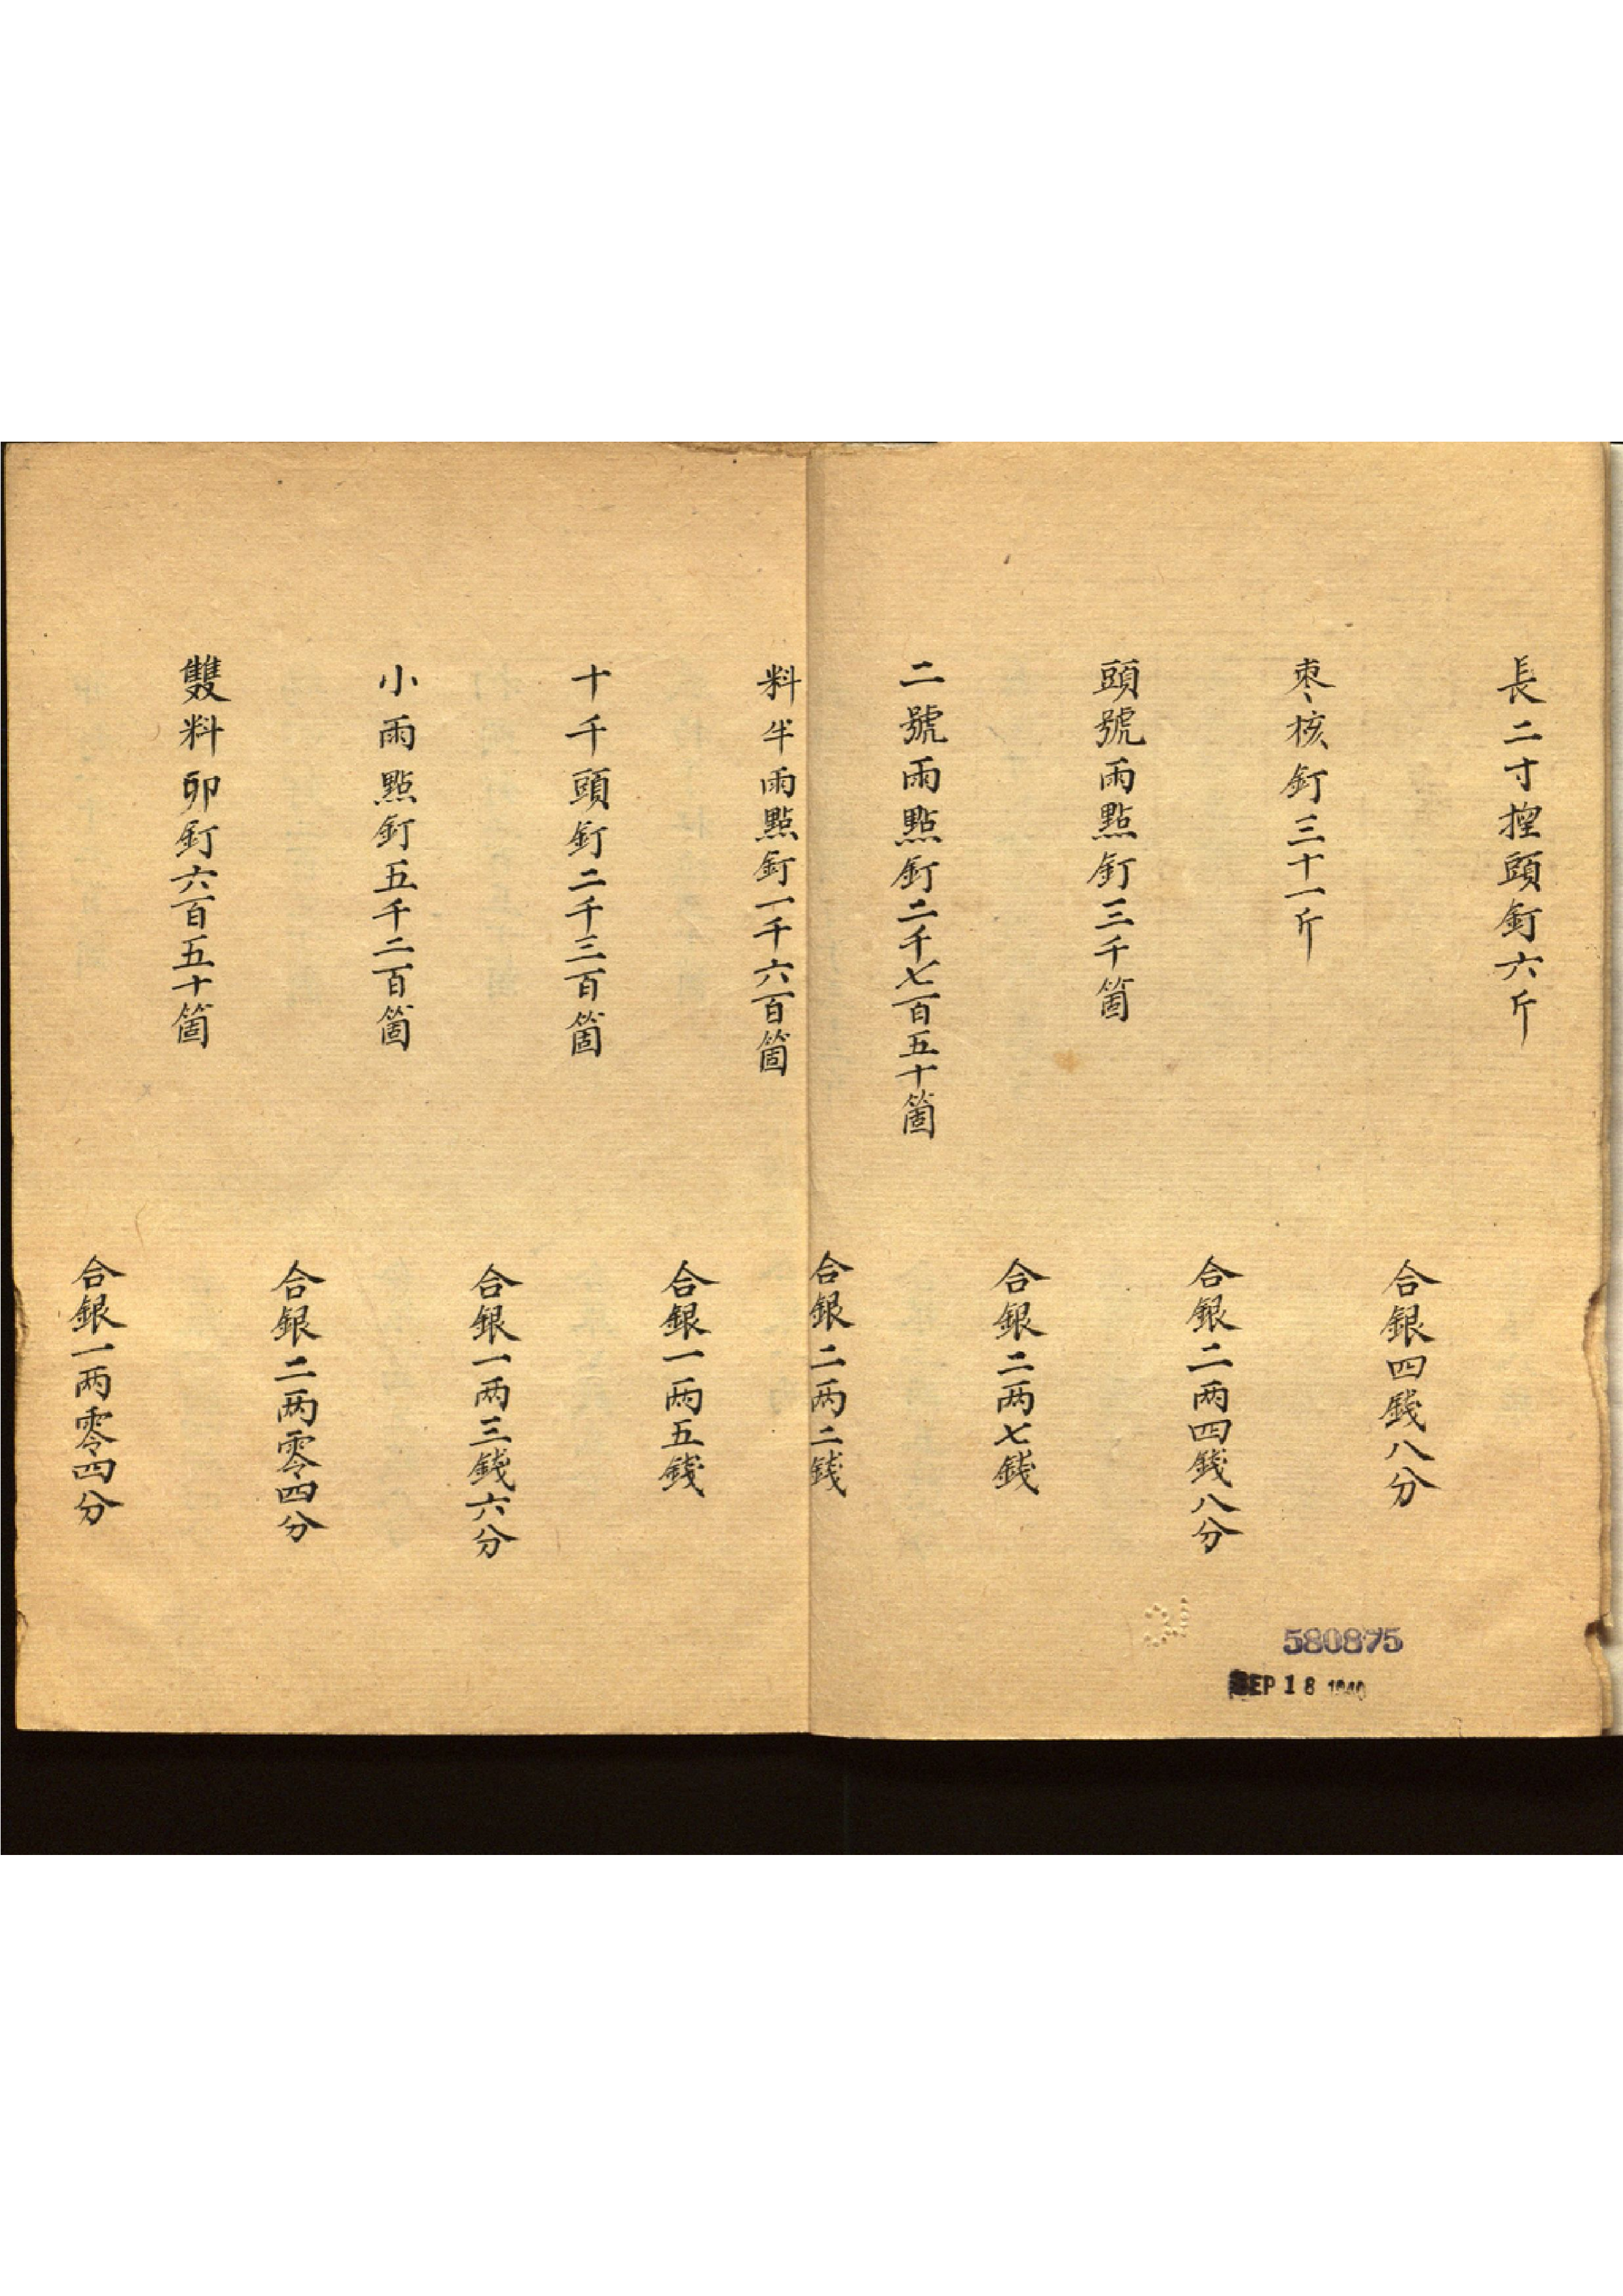 長二寸揑頭釘六斤
合銀四錢八分
枣核釘三十一斤
合銀二两四錢八分
頭號雨點釘三千箇
合銀二两七錢
二號雨點釘二千七百五十箇
合銀二两二錢
料半雨點釘一千六百箇
合銀一两五錢
十千頭釘二千三百箇
合銀一两三錢六分
小雨點釘五千二百箇
合銀二两零四分
雙料卯釘六百五十箇
合銀一两零四分
580875
SEP 18 1940